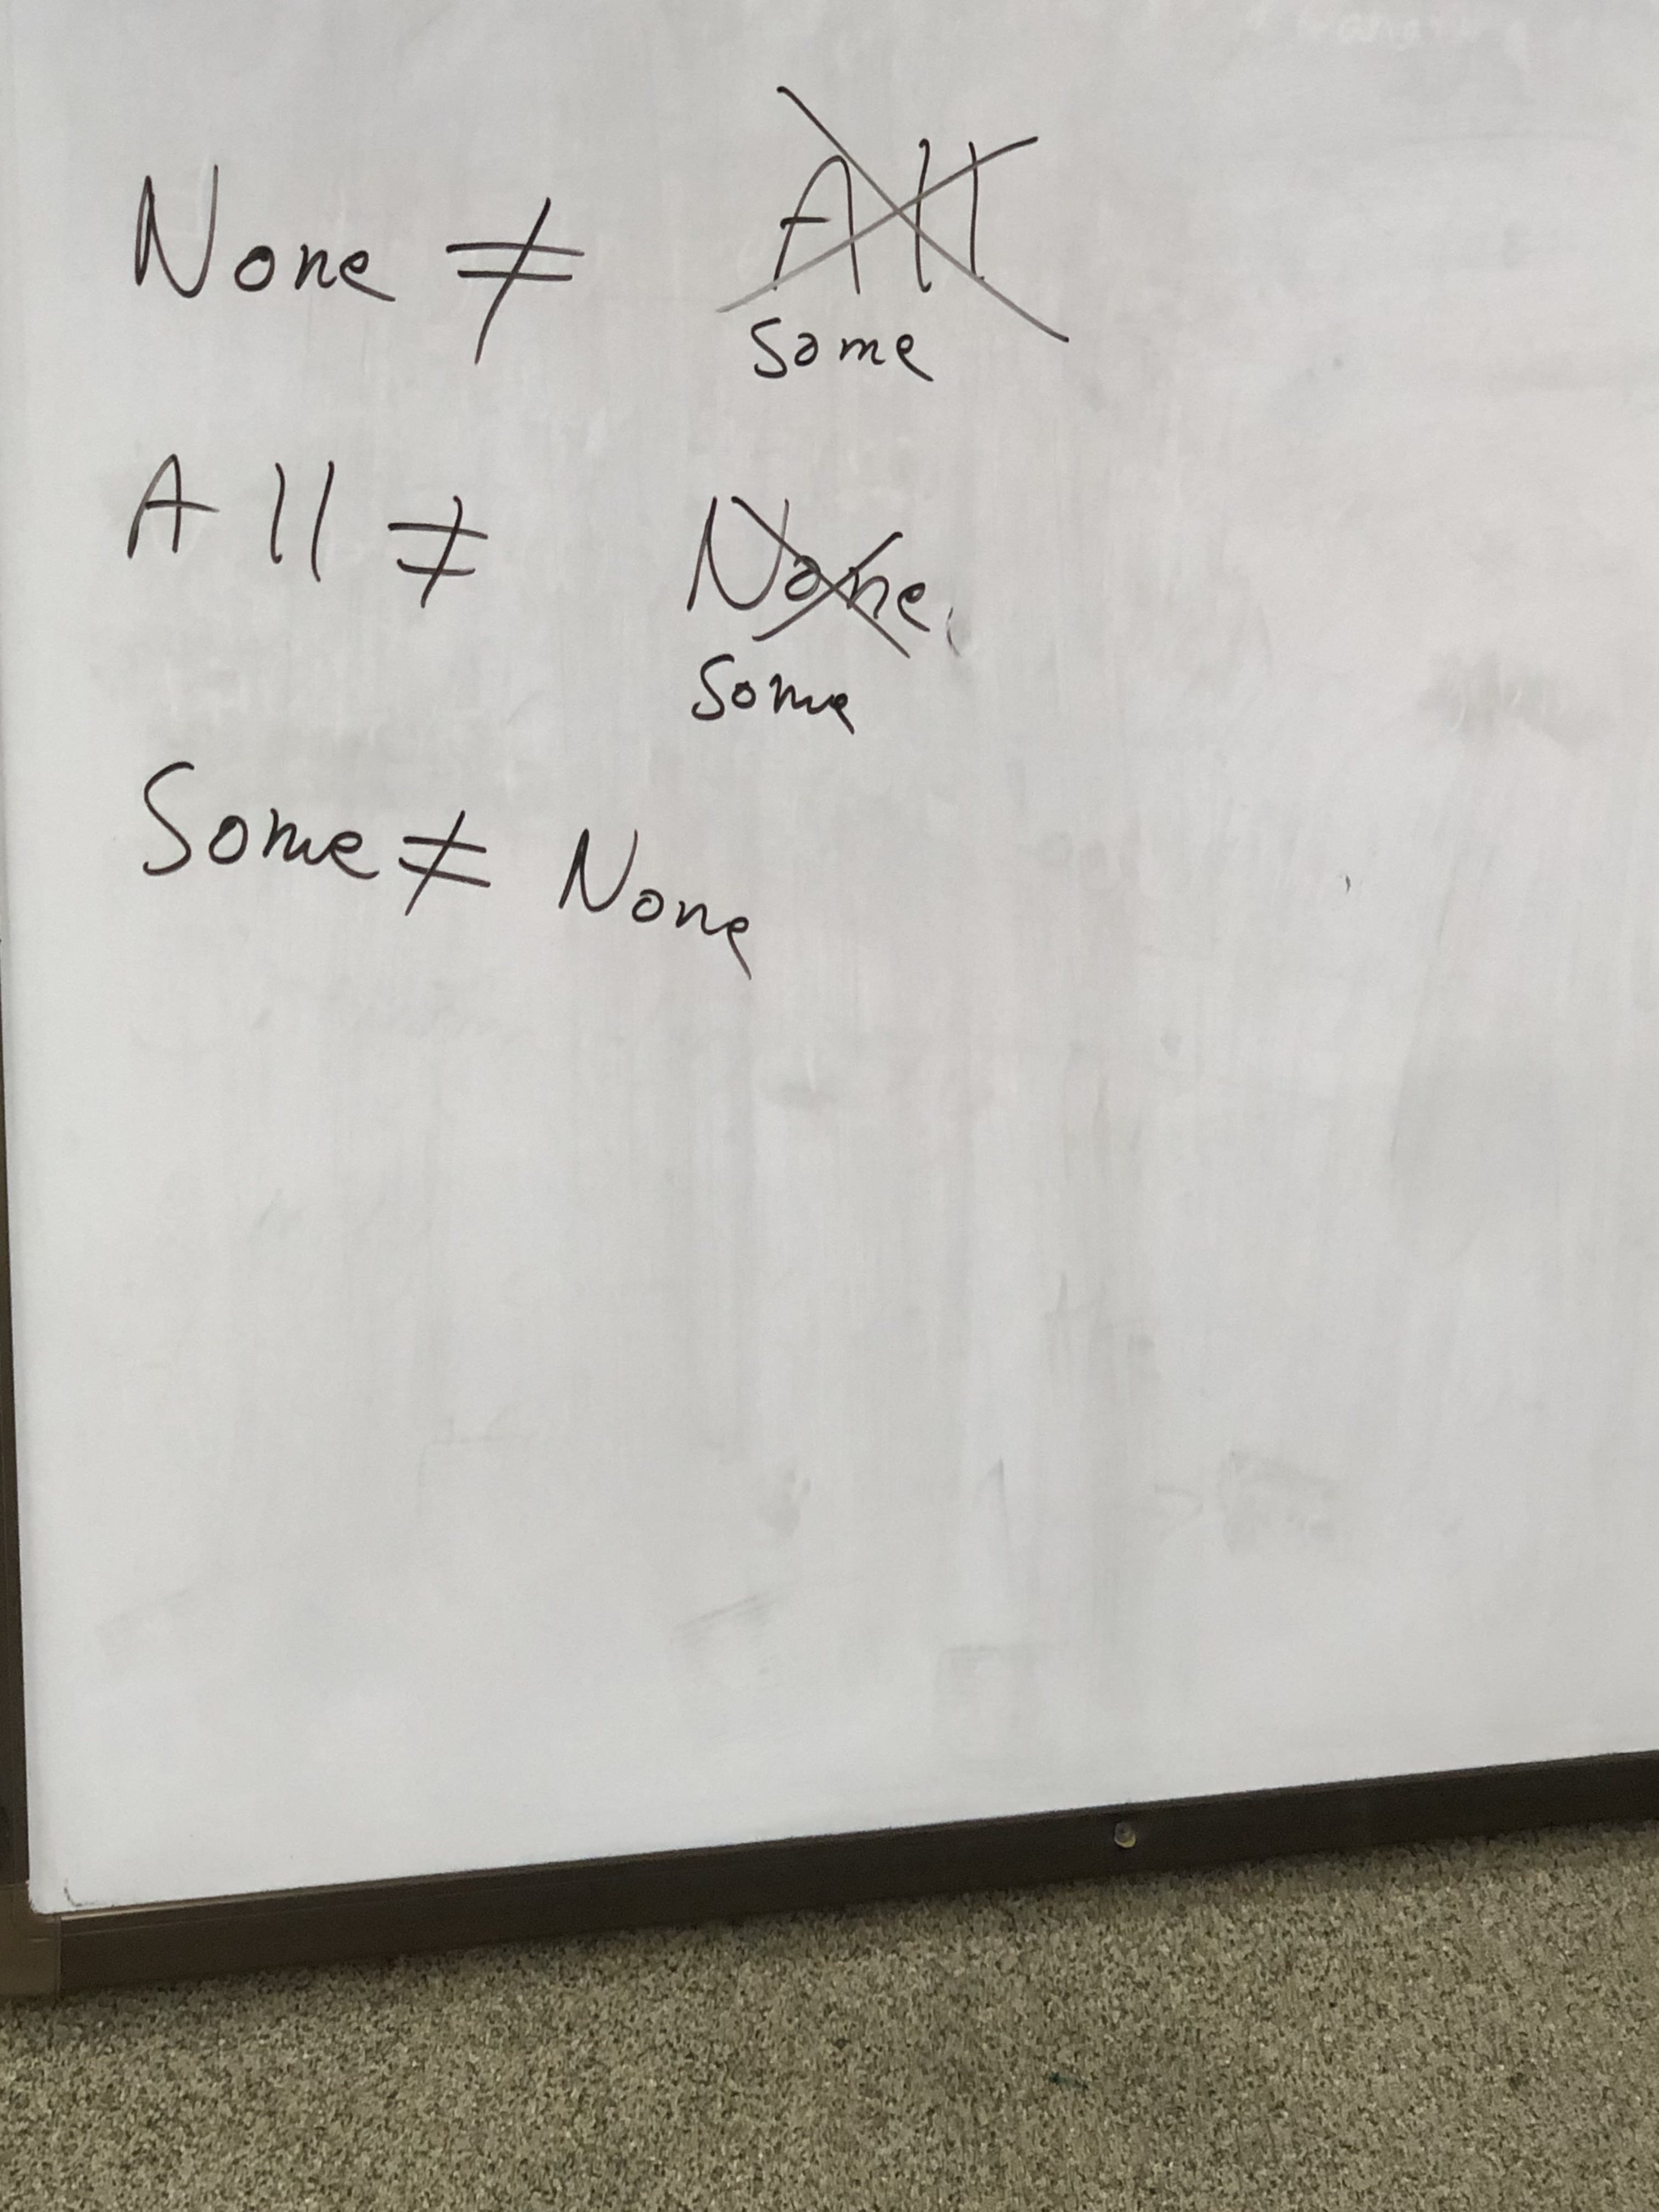 None ≠ All
Some
All ≠ None
Some
Some ≠ None